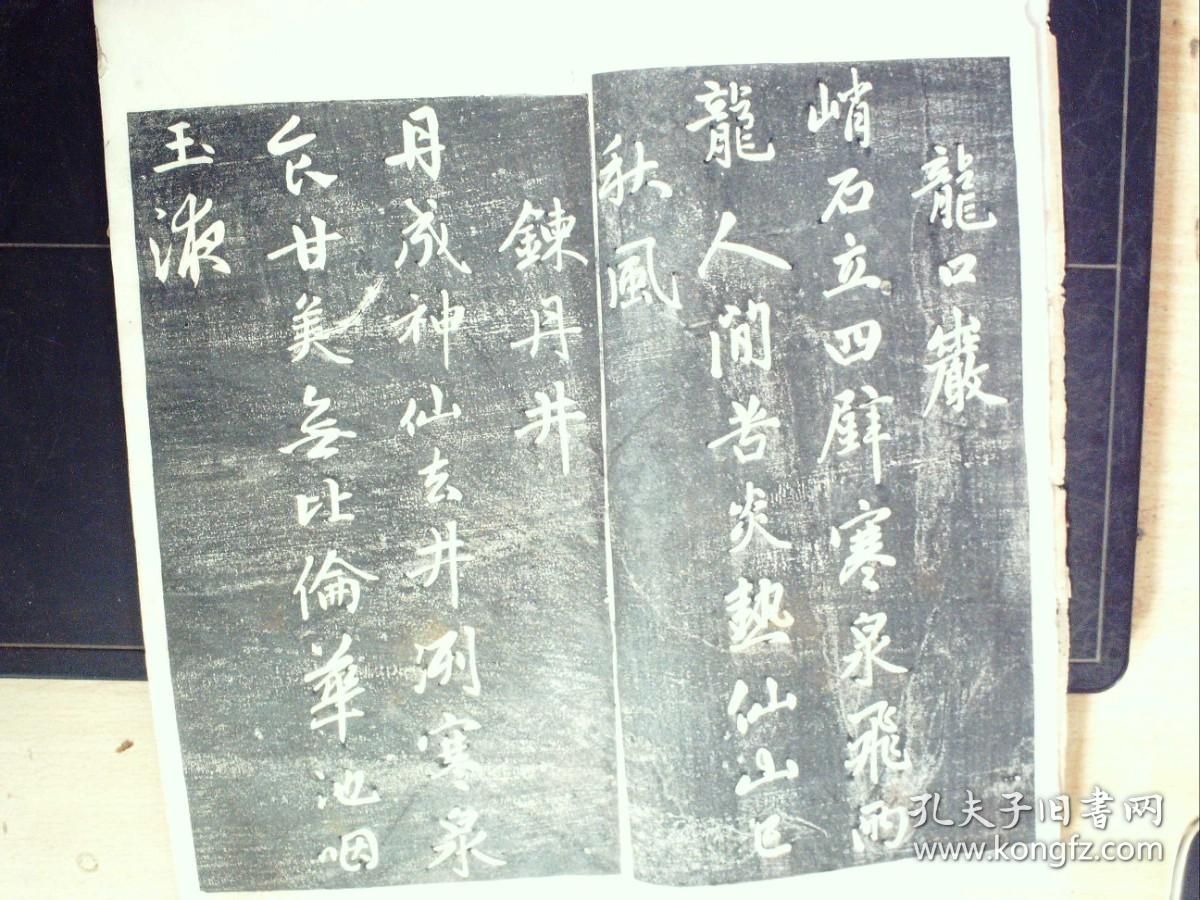 龍口巖
峭石立四壁寒泉飛兩
龍人間苦炎熱仙山已
秋風
鍊丹井
丹成神仙去井冽寒泉
食甘美無比倫華池咽
玉液
孔夫子旧書网
www.kongfz.com